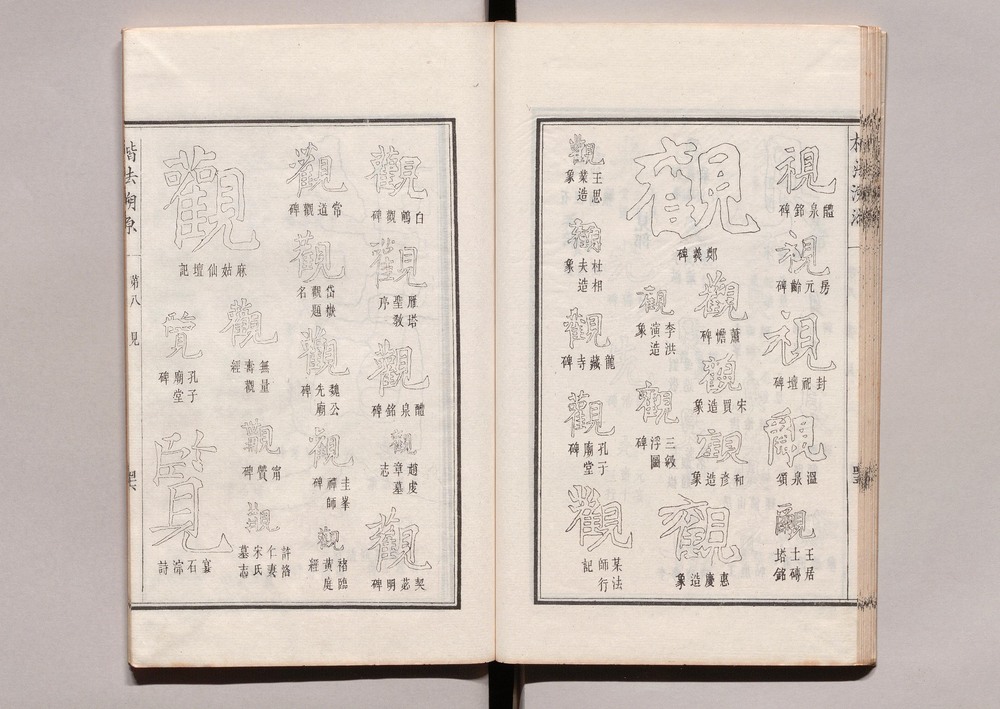 視
醴泉銘碑
視
房元齡碑
視
封祀壇碑
覶
溫泉頌
覶
王居士磚塔銘
觀
鄭羲碑
觀
蕭憺碑
觀
宋買造象
觀
和彥造象
觀
李洪演造象
觀
三級浮圖碑
觀
惠慶造象
觀
王思業造象
觀
杜相夫造象
觀
龍藏寺碑
觀
孔子廟堂碑
觀
某法師行記
觀
白鶴觀碑
觀
雁塔聖教序
觀
醴泉銘碑
觀
趙虔章墓志
觀
契苾明碑
觀
常道觀碑
觀
岱嶽觀題名
觀
魏公先廟碑
觀
圭峯禪師碑
觀
褚臨黃庭經
觀
麻姑仙壇記
觀
無量壽觀經
觀
甯贙碑
觀
許洛仁妻宋氏墓志
覽
孔子廟堂碑
覽
宴石淙詩
楷法溯原
第八
見